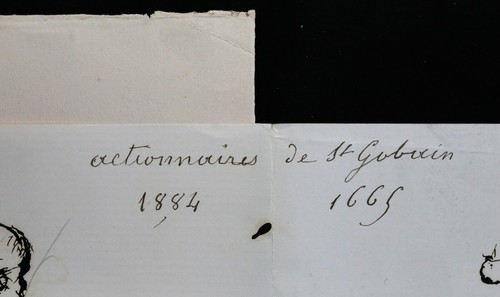 actionnaires de St Gobain
1884 1665